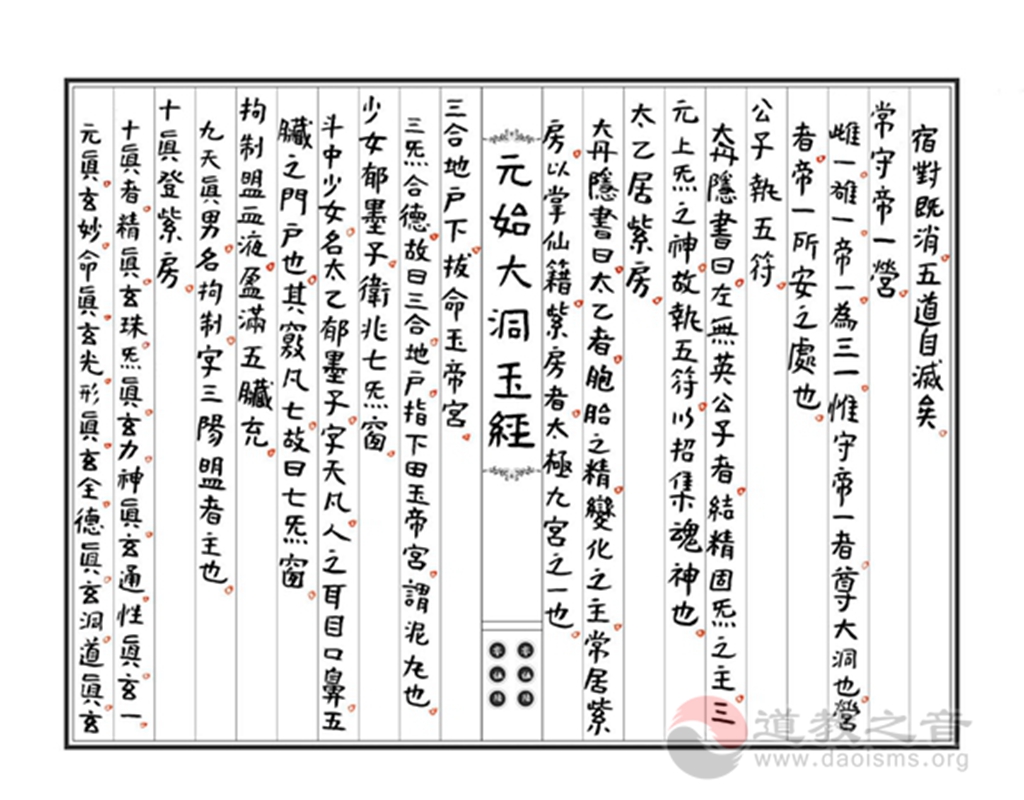 宿對既消五道自滅矣
常守帝一營
雌一雄一帝一為三一惟守帝一者尊大洞也營
者帝一所安之處也
公子執五符
大丹隱書曰左無英公子者結精固炁之主三
元上炁之神故執五符以招集魂神也
太乙居紫房
大丹隱書曰太乙者胞胎之精變化之主常居紫
房以掌仙籍紫房者太極九宮之一也
元始大洞玉經
三合地戶下拔命玉帝宮
三炁合德故曰三合地戶指下田玉帝宮謂泥丸也
少女郁墨子衛兆七炁窗
斗中少女名太乙郁墨子字天凡人之耳目口鼻五
臟之門戶也其竅凡七故曰七炁窗
拘制盟血液盈滿五臟充
九天眞男名拘制字三陽盟者主也
十眞登紫房
十眞者精眞玄珠炁眞玄力神眞玄通性眞玄一
元眞玄妙命眞玄光形眞玄全德眞玄洞道眞玄
道教之音
www.daoisms.org